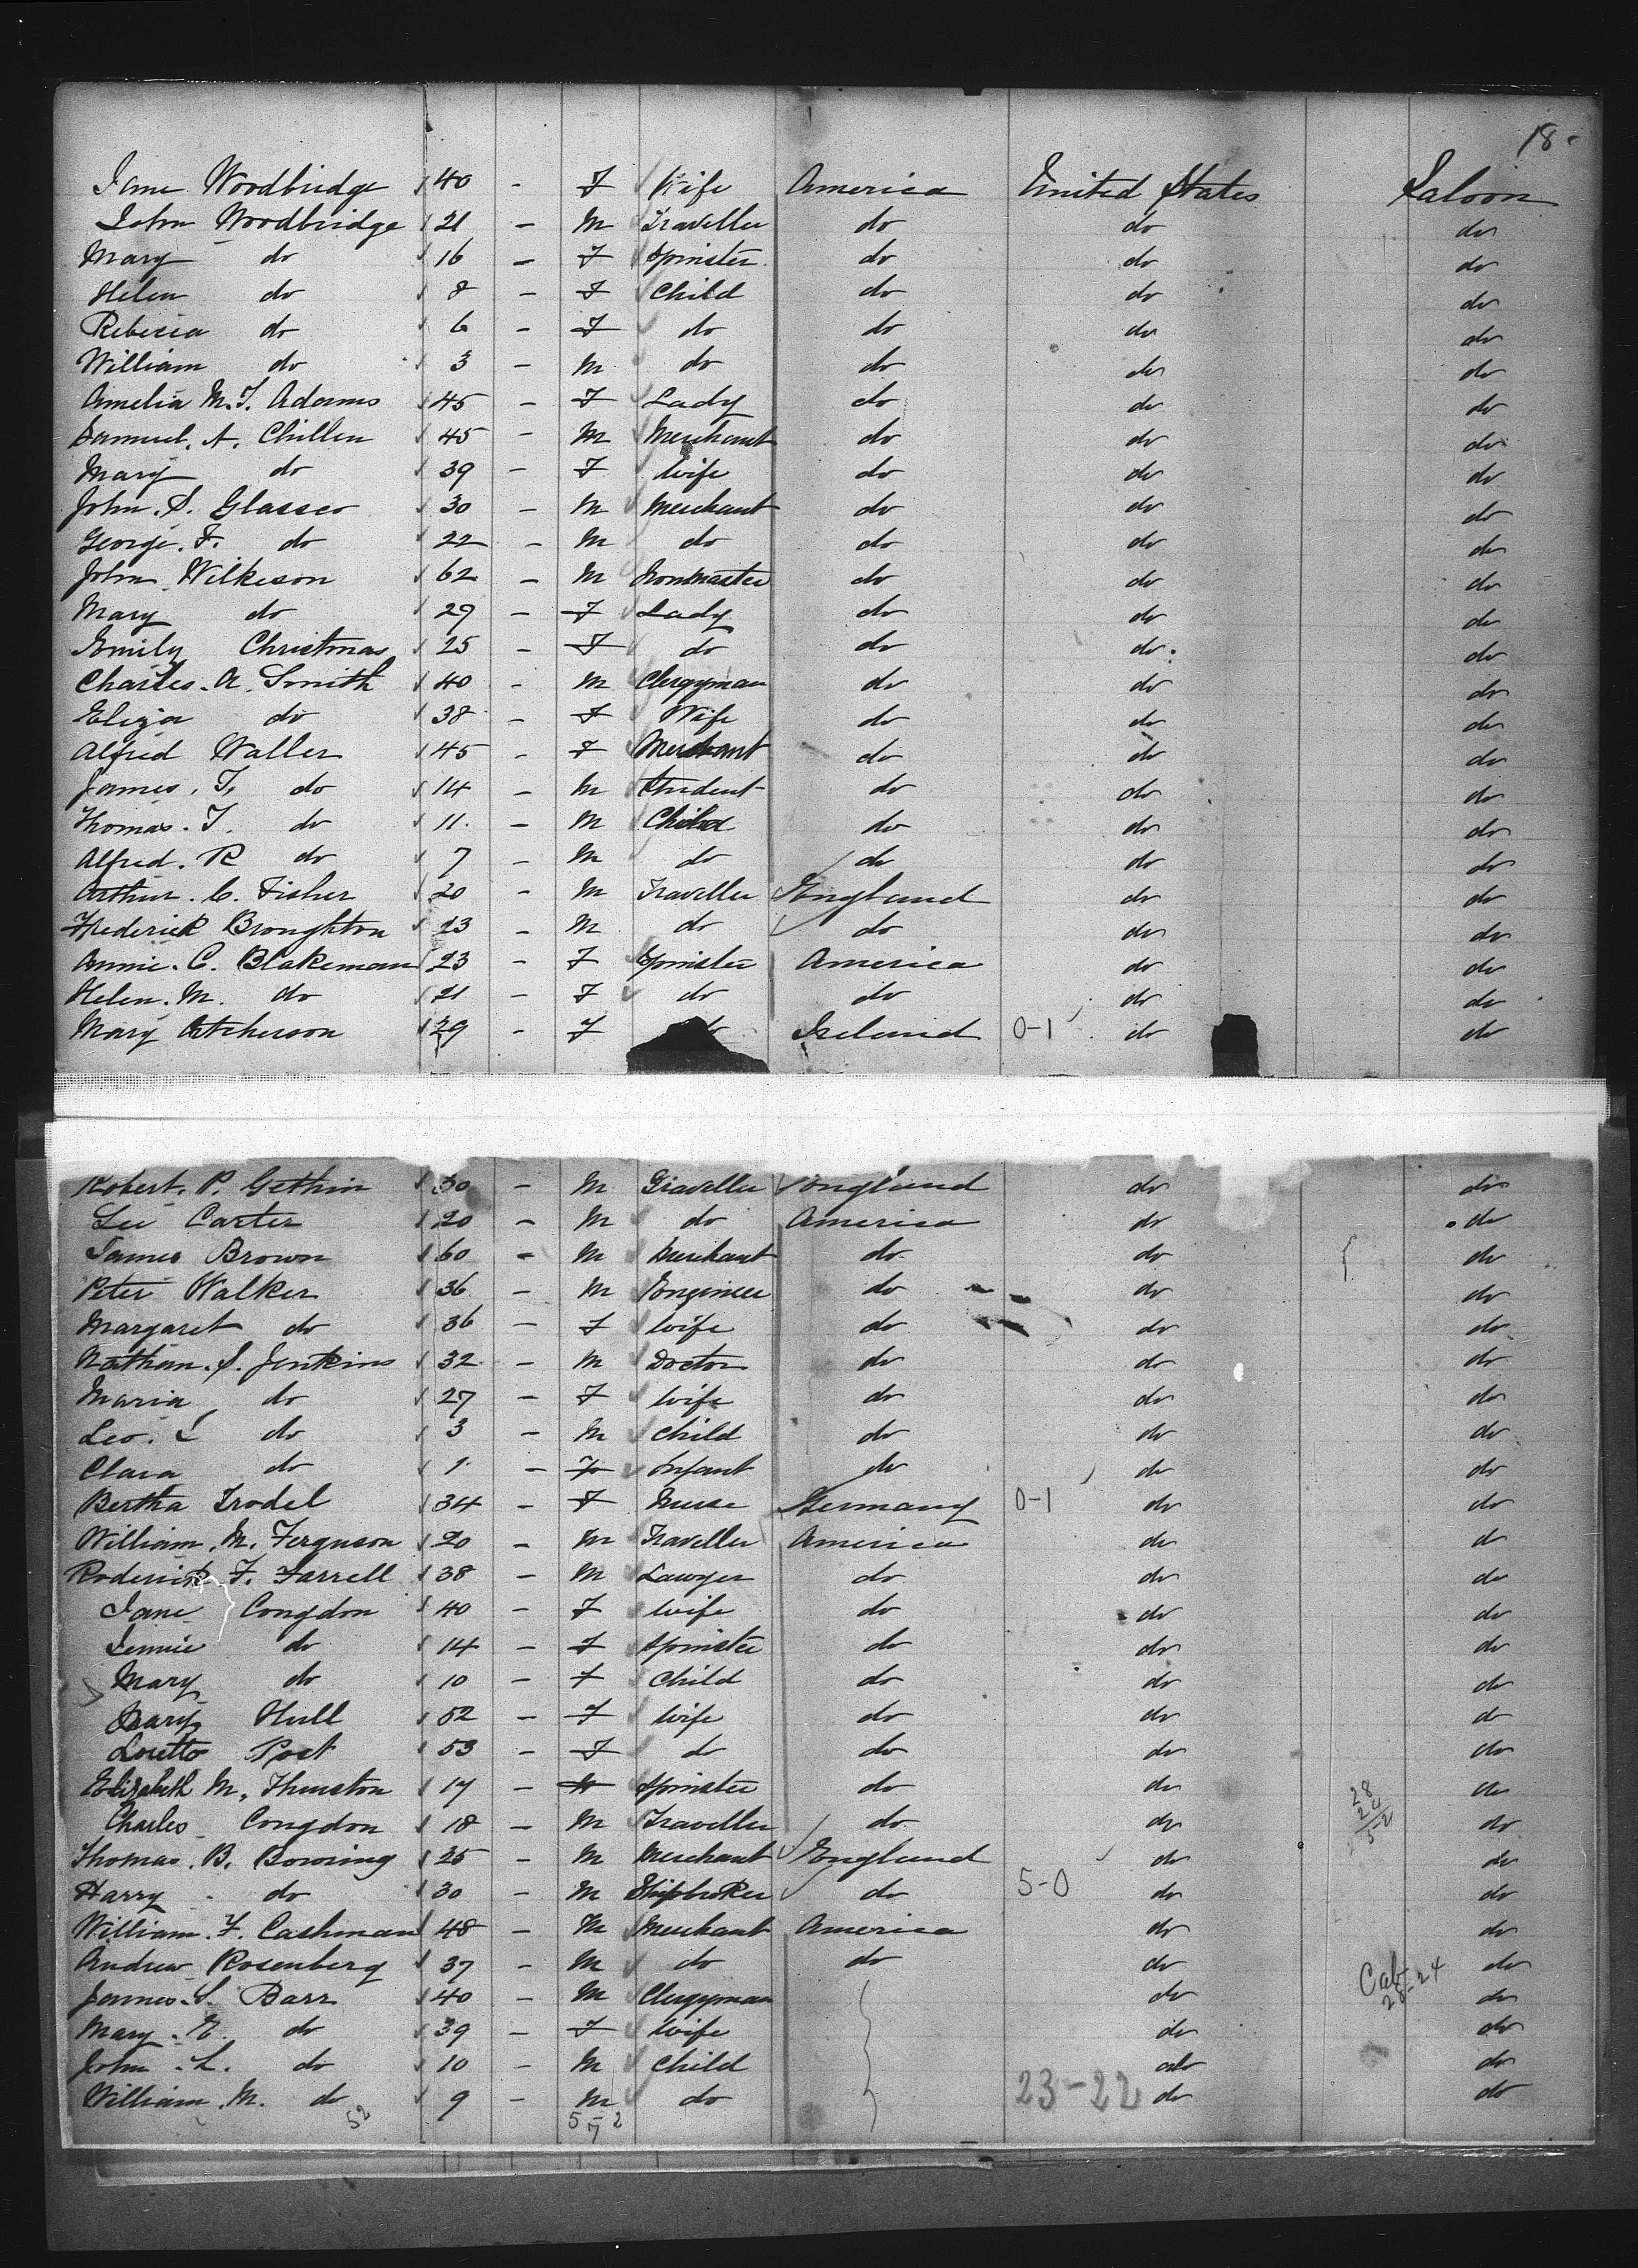 18
Jane Woodbridge 40 - F Wife America United States Saloon
John Woodbridge 21 - M Traveller do do do
Mary do 16 - F Spinster do do do
Helen do 8 - F Child do do do
Rebecca do 6 - F do do do do
William do 3 - M do do do do
Amelia M. J. Adams 45 - F Lady do do do
Samuel. A. Chillen 45 - M Merchant do do do
Mary do 39 - F Wife do do do
John. S. Glasser 30 - M Merchant do do do
George. F. do 22 - M do do do do
John Wilkeson 62 - M Ironmaster do do do
Mary do 29 - F Lady do do do
Emily Christmas 25 - F do do do do
Charles. A. Smith 40 - M Clergyman do do do
Eliza do 38 - F Wife do do do
Alfred Waller 45 - F Merchant do do do
James. T. do 14 - M Student do do do
Thomas. T. do 11 - M Child do do do
Alfred. R do 7 - M do do do do
Arthur. C. Fisher 20 - M Traveller England do do
Frederick Broughton 23 - M do do do do
Annie. C. Blakeman 23 - F Spinster America do do
Helen. M. do 21 - F do do do do
Mary 29 - F Ireland 0-1 do do
Robert. P. Gethin 30 - M Traveller England do do
Lee Carter 20 - M do America do do
James Brown 60 - M Merchant do do do
Peter Walker 36 - M Engineer do do do
Margaret do 36 - F Wife do do do
Nathan. S. Jenkins 32 - M Doctor do do do
Maria do 27 - F Wife do do do
Leo. L do 3 - M Child do do do
Clara do 1 - F Infant do do do
Bertha Trodel 34 - F Nurse Germany 0-1 do do
William. M. Ferguson 20 - M Traveller America do do
Roderick F. Farrell 38 - M Lawyer do do do
Jane Congdon 40 - F Wife do do do
Jennie do 14 - F Spinster do do do
Mary do 10 - F Child do do do
Mary Hull 52 - F Wife do do do
Loretto Post 53 - F do do do do
Elizabeth M. Thurston 17 - Spinster do do do
28
24
52
Charles Congdon 18 - M Traveller do do do
Thomas. B. Bowring 25 - M Merchant England do do
Harry do 30 - M Shipbroker do 5-0 do do
William. F. Cashman 48 - M Merchant America do do
Andrew Rosenberg 37 - M do do do do
James. S. Barr 40 - M Clergyman do Cab 28-24 do
Mary. E. do 39 - F Wife do do
John. L. do 10 - M Child do do
William. M. do 9 - M do 23-22 do do
52 5-2
7